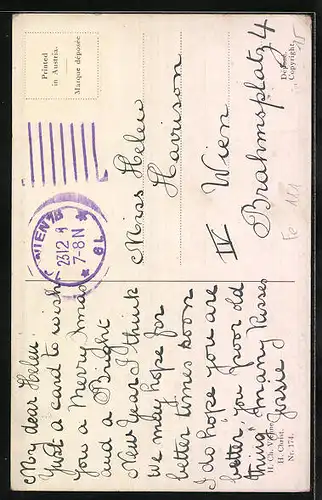 My dear Helen
Just a card to wish
you a Merry Xmas
and a Bright
New Year I think
we may hope for
better times soon
I do hope you are
better, you poor old
thing, many kisses
Jessie
H. Christ.
Nr. 174.
Printed
in Austria.
Marque déposée
WIEN
23 12
7-8 N
6L
Miss Helen
Harrison
IV Wien
Brahmsplatz 4
Copyright.